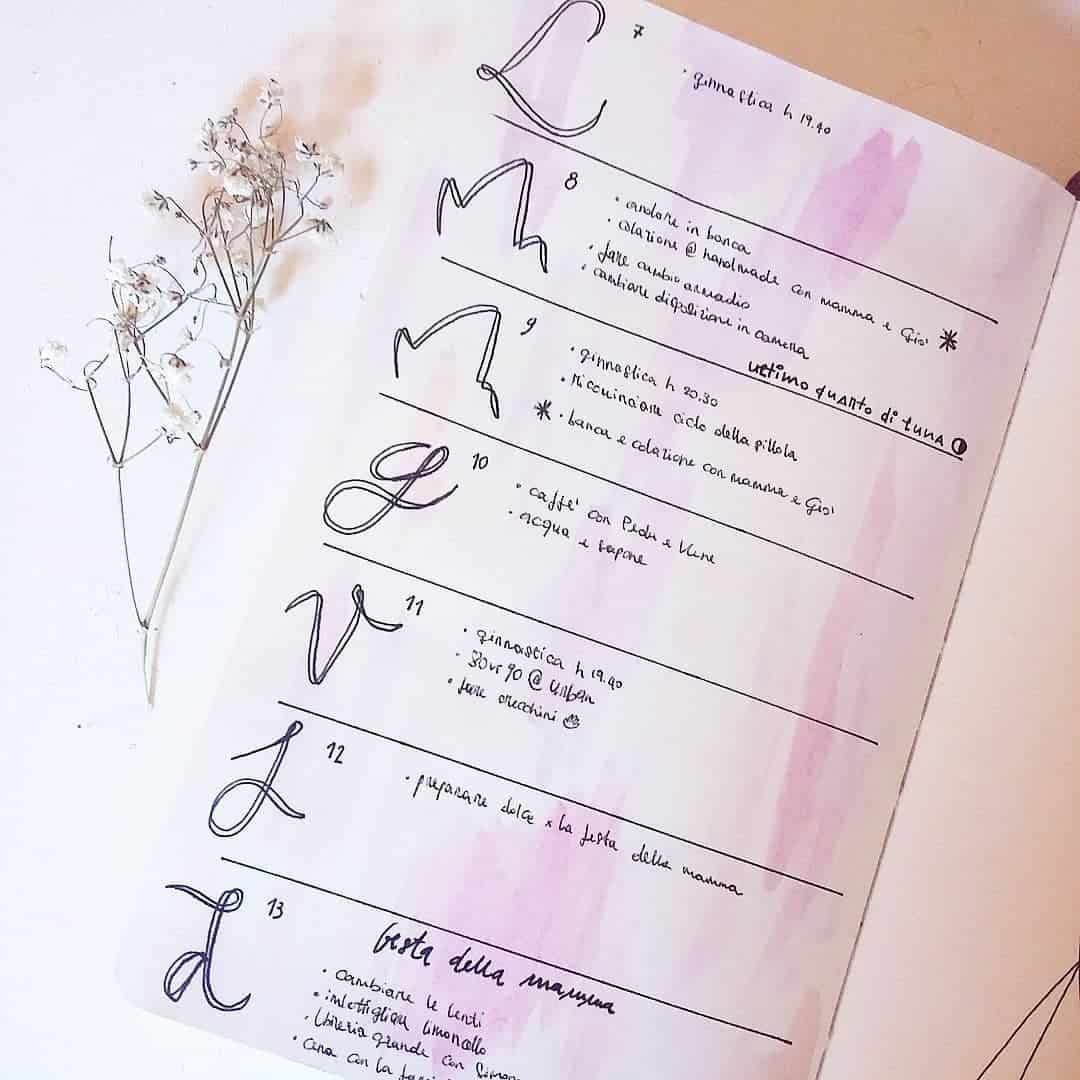 L 7
• ginnastica h 19.40
M 8
• andare in banca
• colazione @ handmade con mamma e Gio' *
• fare cambio armadio
• cambiare disposizione in camera
ultimo quarto di luna
M 9
• ginnastica h 20.30
• ricominciare ciclo della pillola
* • banca e colazione con mamma e Gio'
G 10
• caffe' con e
• acqua e sapone
V 11
• ginnastica h 19.40
• 80 vs 90 @ Urban
• fare orecchini
S 12
• preparare dolce x la festa della mamma
D 13
festa della mamma
• cambiare le lenti
• imbottigliare limoncello
• libreria grande con
• cena con la